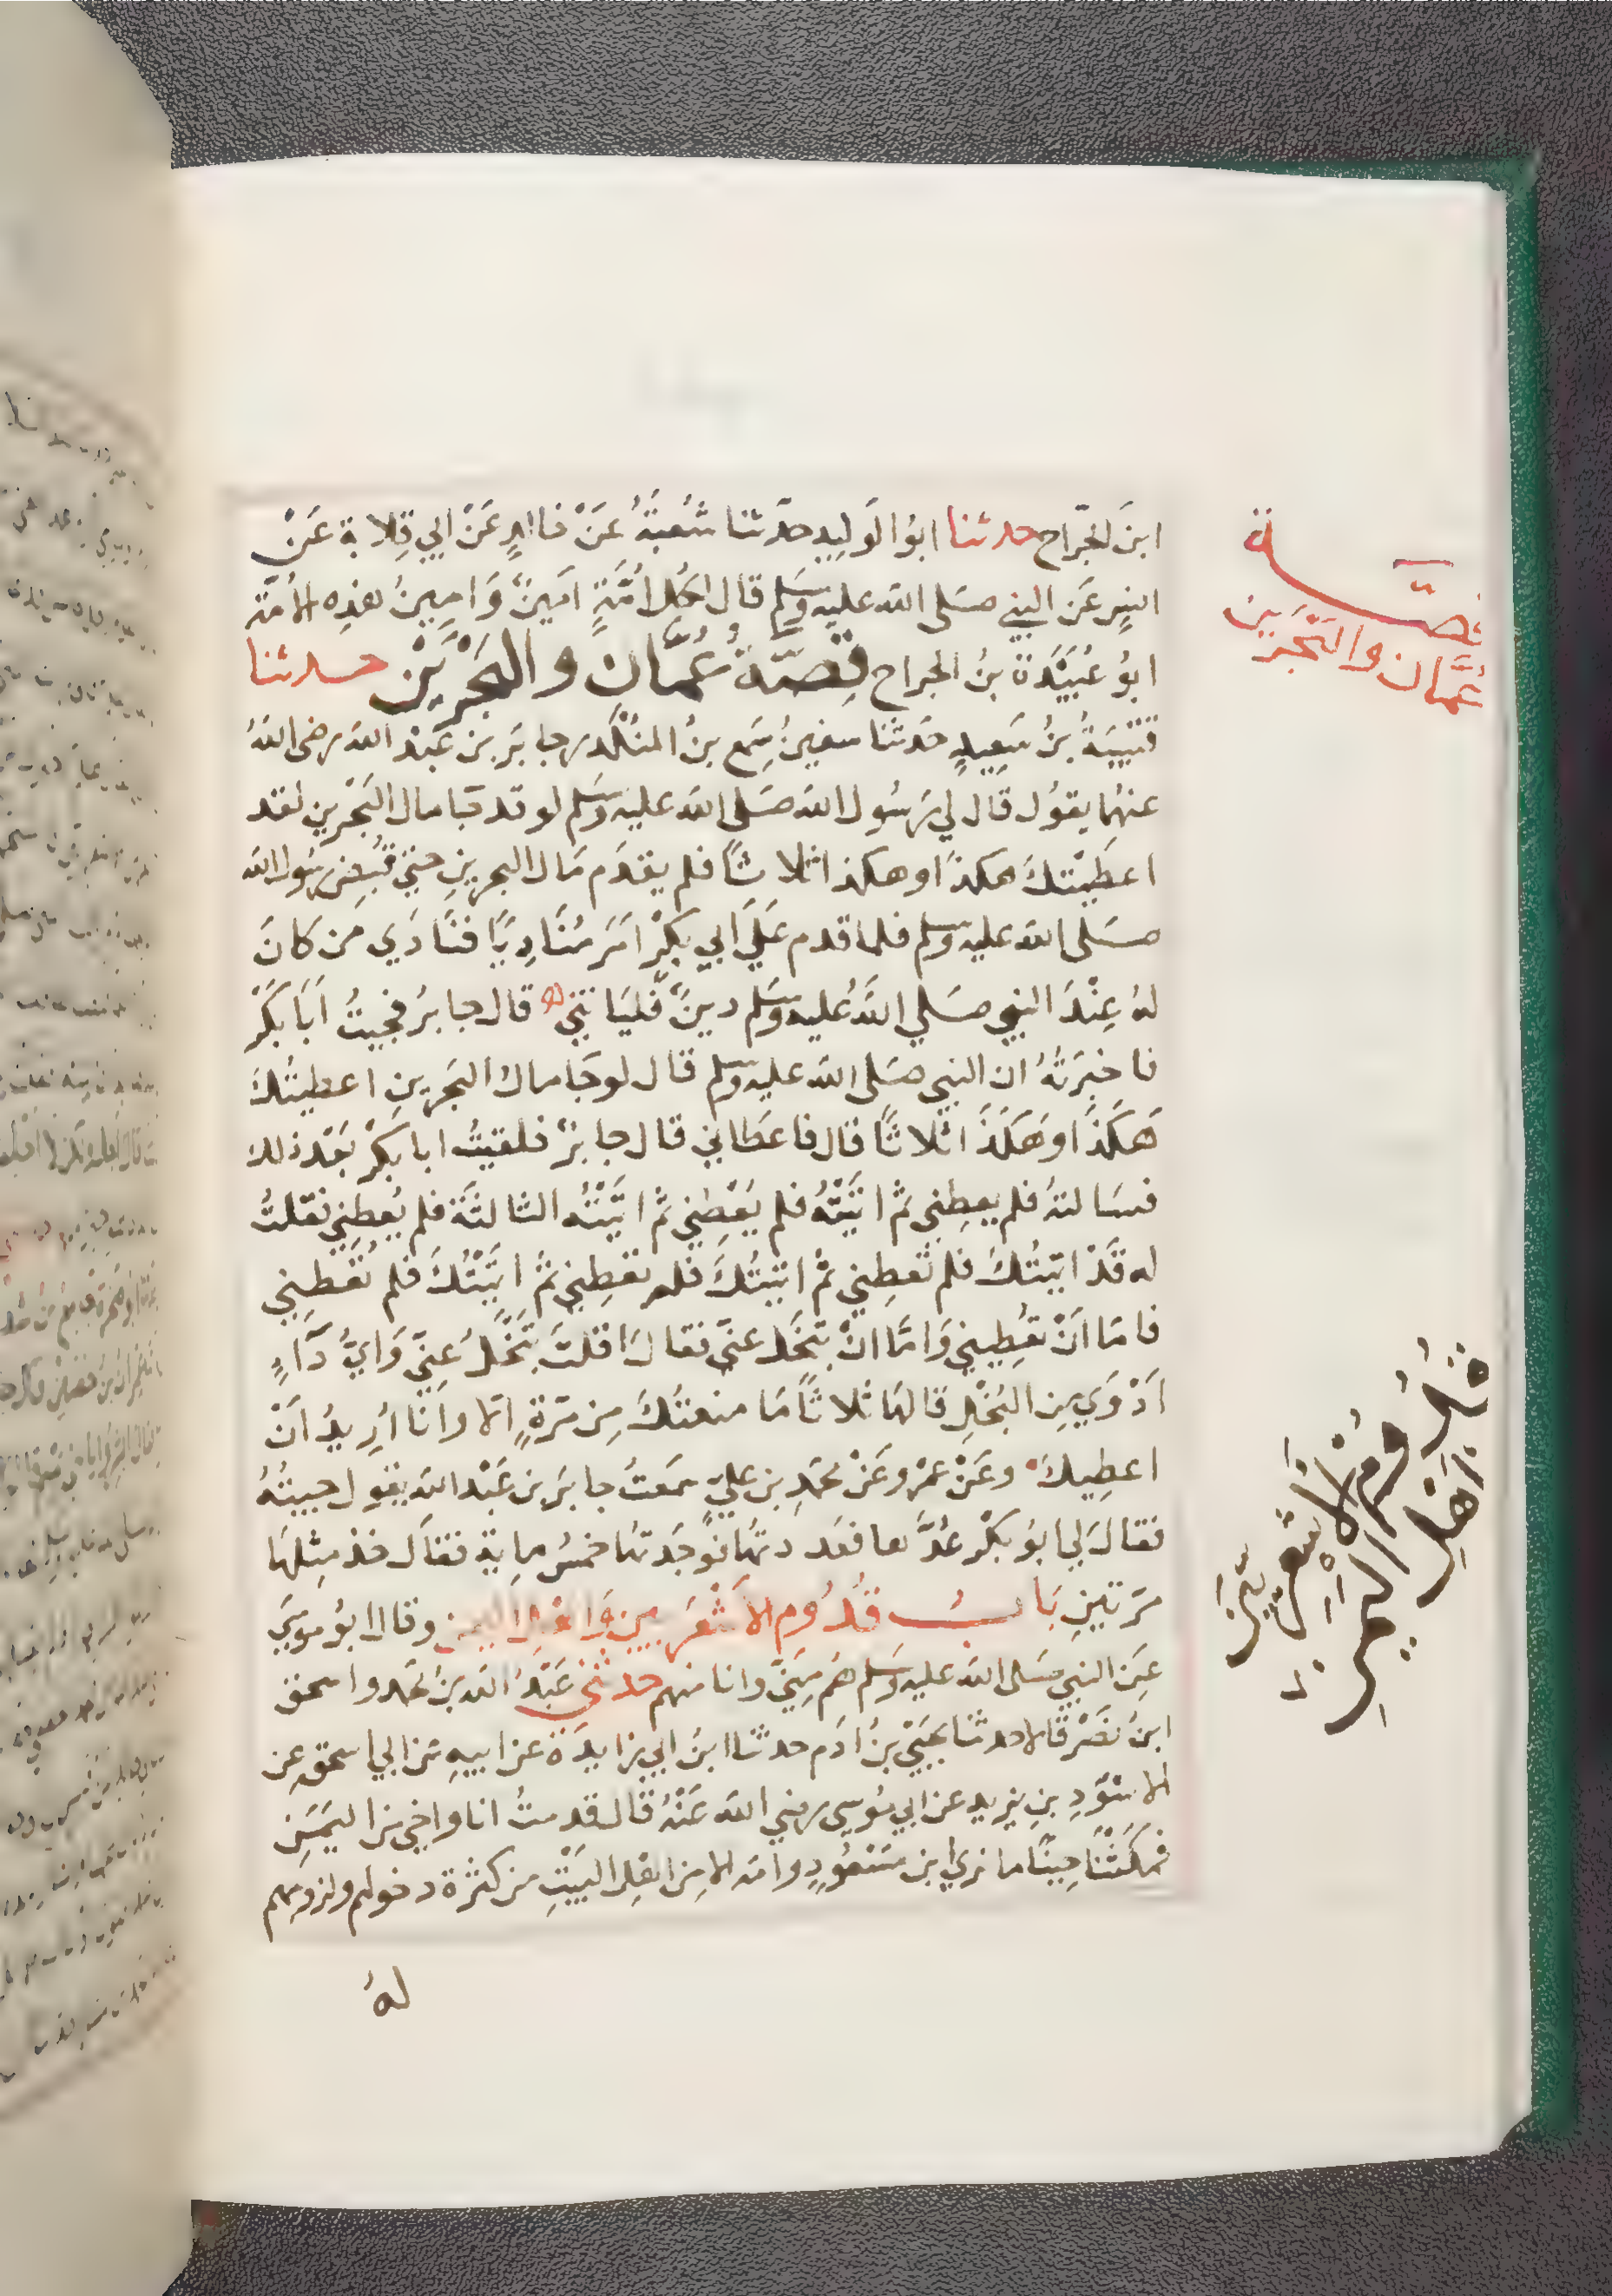 ابنَ الجرّاح حدثنا ابوُ الوَلِيدِ حدَّثنا شُعْبَةُ عَنْ خالدٍ عَنْ ابي قِلابة عَنْ
انسٍ عَن النبي صَلى الله عليه وسَلم قال لكل اُمَّةٍ امَينٌ وَامِينُ هذِهِ الامَّة
ابوُ عُبَيْدَة بنُ الجراح قِصّةُ عُمّانِ والبَحْرَيْن حدثنا
قتَيْبَةُ بنُ سَعِيدٍ حدَثنا سفينُ سَمِع بنُ المنُكَدر جابَر بن عَبْد الله رضى اللهُ
عنهُما يقوُل قال لي رَسُول الله صَلى الله عليه وسَلم لو قد جَا مال البَحْرين لقد
اعطَيْتكَ هكذَا وهكذا ثلاثًا فلم يقدَم مَال البحرينِ حتي قُبِضَ رسُول الله
صَلى الله عليه وسلم فلما قدم عَلَي اَبي بكرٍ امَرَ مُنَادِيًا فنَادَي مَن كَانَ
لهُ عِنْدَ النبي صَلي اللَّهُ عليه وسَلم دينٌ فَليَاتني قال جابرُ فجيتُ اَبَا بَكْر
فاخبَرتُهُ ان النبي صَلى الله عليه وسلم قال لو جَا مال البَحرين اعطيتُكَ
هَكَذَا وهَكَذَا ثلاثًا قال فاعطَاني قال جابرٌ فلقيتُ ابا بكرْ بَعْد ذلك
فسَالتهُ فلم يعطِني ثم اتَيْتُهُ فلم يُعْطِني ثم اتَيْتُه الثالثَة فلم يُعطِني فقلتُ
له قَدْ اتيتُكَ فلم تُعطِني ثمْ اتيتُكَ فلم تعطِني ثمَّ اتَيْتُكَ فلم تُعْطِني
فامَا اَنْ تعُطِيني وَامّا انْ تبخَل عني فقال اقلتَ تَبْخَل عنِيّ وَايُّ دَآءٍ
اَدْوَي مِن البُخْلِ قالهَا ثلاثًا مَا منعتُكَ مِن مَرّةٍ الا وَانَا اُرِيدُ اَنْ
اعطِيكَ وعَنْ عمْرو عَنْ محمَدِ بن عليّ سَمعَتُ جابرَ بن عَبْد الله يقول جيتُهُ
فقالَ لي ابوُ بكْر عُدَّها فعَددتهَا فوَجَدتهَا خمسُ مايةٍ فقاَل خذ مِثلهَا
مَرتينِ بَابُ قدُوُم الاَشْعَريين وَاهْل اليمن وقال ابوُ موسَي
عَن النبي صَلى الله عليه وسَلم هُم مِنيّ وانا منهم حدثني عَبْدُ الله بنُ محمد واسحق
ابنُ نصَرْ قالا حدثنا يحيَي بنُ ادَم حدثنا ابنُ ابي زايدَة عن ابيهِ عن ابي اسحق عن
الاسْوَدِ بنِ يزيد عن ابي موُسى رضي الله عَنْهُ قال قدمتُ انا واخي من اليَمَن
فمكَثْنَا حِينًا ما نري ابن مسْعوُدٍ وامّه الا مِن اهْل البَيْتِ من كثرة دخولهم ولزومهم
لهُ
قصّة
عُمَّان والبَحْرَين
قدُوُم الاشعَريّين
وَاهْلِ اليَمِن